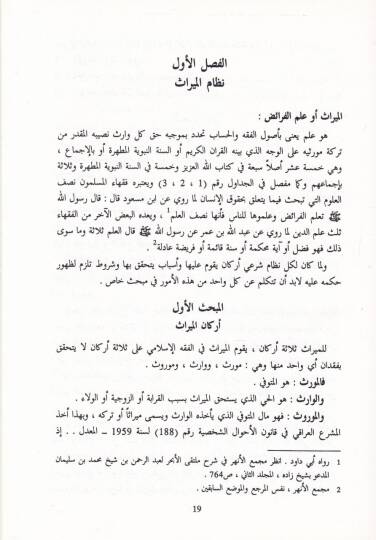 الفصل الأول
نظام الميراث
الميراث أو علم الفرائض :
هو علم يعنى بأصول الفقه والحساب تحدد بموجبه حق كل وارث نصيبه المقدر من
تركة مورثيه على الوجه الذي بينه القران الكريم أو السنة النبوية المطهرة أو بالاجماع ،
وهي خمسة عشر أصلاً سبعة في كتاب الله العزيز وخمسة في السنة النبوية المطهرة وثلاثة
بإجماعهم وكا مفصل في الجداول رقم (1 ، 2 ، 3) ويعتبره فقهاء المسلمون نصف
العلوم التي تبحث فيما يتعلق بحقوق الإنسان لما روي عن ابن مسعود قال : قال رسول الله
ﷺ تعلم الفرائض وعلموها للناس فأنها نصف العلم1 ، ويعده البعض الآخر من الفقهاء
ثلث علم الدين لما روي عن عبد الله بن عمر عن رسول الله ﷺ قال العلم ثلاثة وما سوى
ذلك فهو فضل أو آية محكمة أو سنة قائمة أو فريضة عادلة2.
ولما كان لكل نظام شرعي أركان يقوم عليها وأسباب يتحقق بها وشروط تلزم لظهور
حكمه عليه لابد أن تتكلم عن كل واحد من هذه الأمور في مبحث خاص .
المبحث الأول
أركان الميراث
للميراث ثلاثة أركان ، يقوم الميراث في الفقه الإسلامي على ثلاثة أركان لا يتحقق
بفقدان أي واحد منها وهي : مورث ، ووارث ، وموروث .
فالمورث : هو المتوفي .
والوارث : هو الحي الذي يستحق الميراث بسبب القرابة أو الزوجية أو الولاء .
والموروث : فهو مال المتوفي الذي يأخذه الوارث ويسمى ميراثاً أو تركه ، وبهذا أخذ
المشرع العراقي في قانون الأحوال الشخصية رقم (188) لسنة 1959 ــ المعدل . . إذ
1 رواه أبي داود . انظر مجمع الأنهر في شرح ملتقى الأبحر لعبد الرحمن بن شيخ محمد بن سليمان
المدعو بشيخ زاده ، المجلد الثاني ، ص764.
2 مجمع الأنهر ، نفس المرجع والموضع السابقين .
19